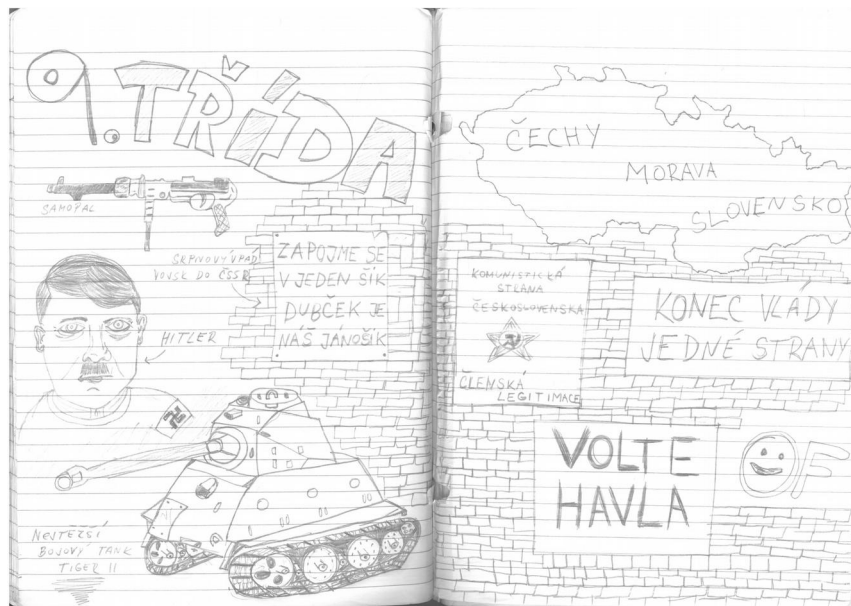 9. TŘÍDA
SAMOPAL
SRPNOVÝ VPÁD
VOJSK DO ČSSR
ZAPOJME SE
V JEDEN ŠIK
DUBČEK JE
NÁŠ JÁNOŠÍK
HITLER
NEJTĚŽŠÍ
BOJOVÝ TANK
TIGER II
ČECHY
MORAVA
SLOVENSKO
KOMUNISTICKÁ
STRANA
ČESKOSLOVENSKA
ČLENSKÁ
LEGITIMACE
KONEC VLÁDY
JEDNÉ STRANY
VOLTE
HAVLA
OF